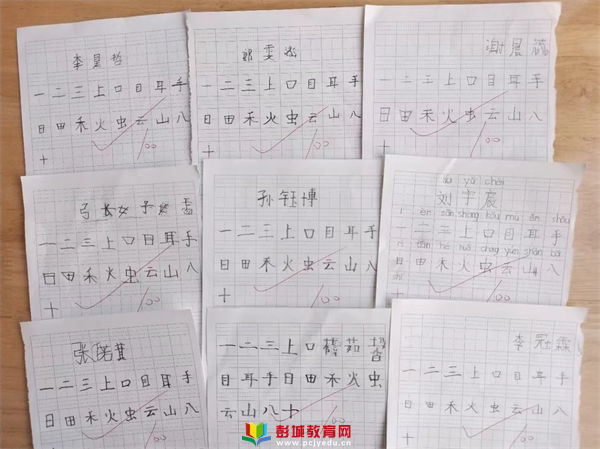 李星哲
一二三上口目耳手
日田禾火虫云山八
十
100
郭雯
一二三上口目耳手
日田禾火虫云山八
十
100
谢晨
一二三上口目耳手
日田禾火虫云山八
十
100
一二三上口目耳手
日田禾火虫云山八
十
100
孙钰博
一二三上口目耳手
日田禾火虫云山八
十
100
liú yǔ chén
刘宇宸
yī èr sān shàng kǒu mù ěr shǒu
一二三上口目耳手
rì tián hé huǒ chóng yún shān bā
日田禾火虫云山八
十
100
张诺萁
一二三上口目耳手
日田禾火虫云山八
十
100
一二三上口
目耳手日田禾火虫
云山八十
100
李冠霖
一二三上口目耳手
日田禾火虫云山八
十
100
彭城教育网
www.pcjyedu.cn